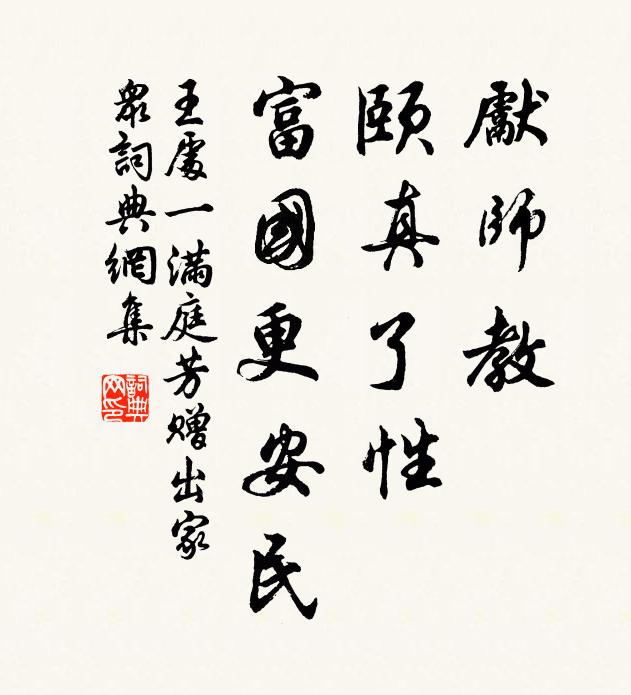 獻師教
頤真了性
富國更安民
王處一滿庭芳贈出家
眾詞典網集
詞典網印